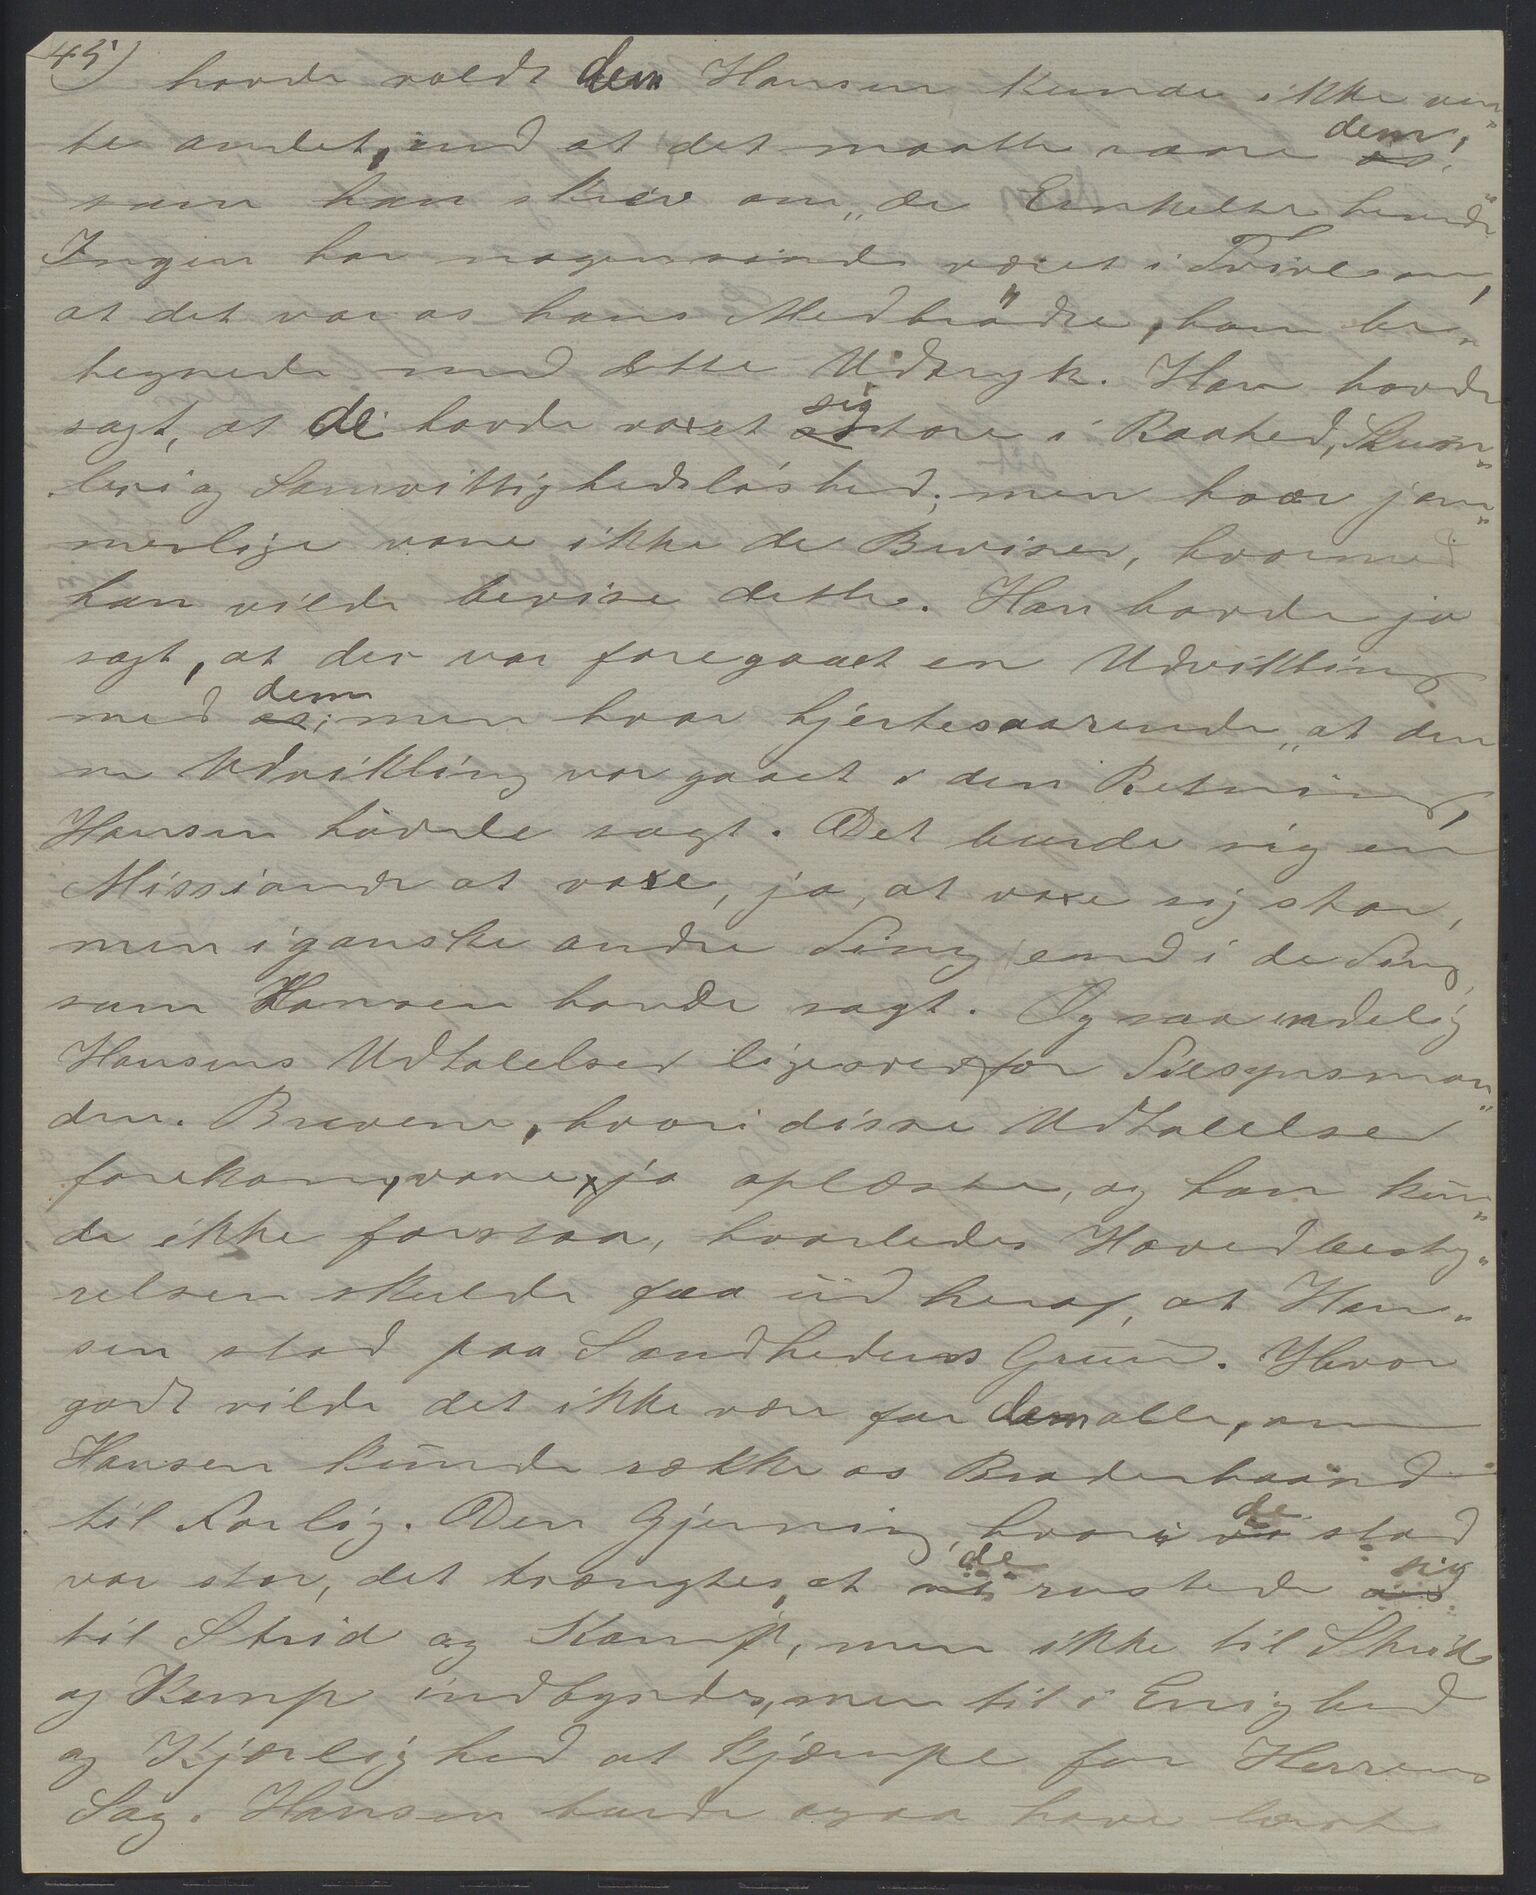 45)
havde voldt dem Hansen kunde ikke ven„
te andet, end at det maatte være os. dem,
som han skrev om „de Enkelte hendø
Ingen har nogensinde været i Tvivl om,
at det var os hans Medbrødre, han be„
tegnede med dette Udtryk. Han havde
sagt, at de havde voxet os sig store i Raahed, Skum„
leri og Samvittighedsløshed; men hvor jam„
merlige vare ikke de Beviser, hvormed
han vilde bevise dette. Han havde jo
sagt, at der var foregaaet en Udvikling
med os; dem men hvor hjertesaarende, at den
ne Udvikling var gaaet i den Retning,
Hansen havde sagt. Det burde sig en
Missionær at voxe, ja, at voxe sig stor,
men i ganske andre Ting end i de Ting,
som Hansen havde sagt. Og saa endelig
Hansens Udtalelser ligeoverfor Tilsynsman„
den. Brevene, hvori disse Udtalelser
forekom, vare jo oplæste, og han kun„
de ikke forstaa, hvorledes Hovedbesty„
relsen skulde faa ud heraf, at Han„
sen stod paa Sandhedens Grund. Hvor
godt vilde det ikke være for dem alle, om
Hansen kunde række os Broderhaand
til Forlig. Den Gjerning, hvori vi de stod
var stor, det trængtes, at vi de rustede os sig
til Strid og Kamp, men ikke til Strid
og Kamp indbyrdes, men til i Enighed
og Kjærlighed at kjæmpe for Herrens
Sag. Hansen burde ogsaa have lært